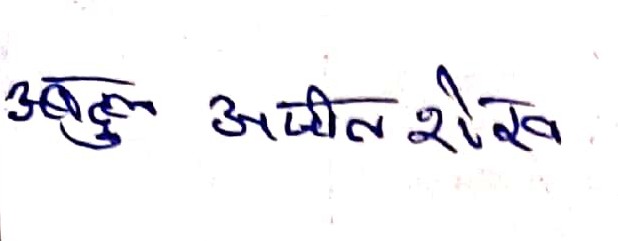 अब्दुल अजीज शेख